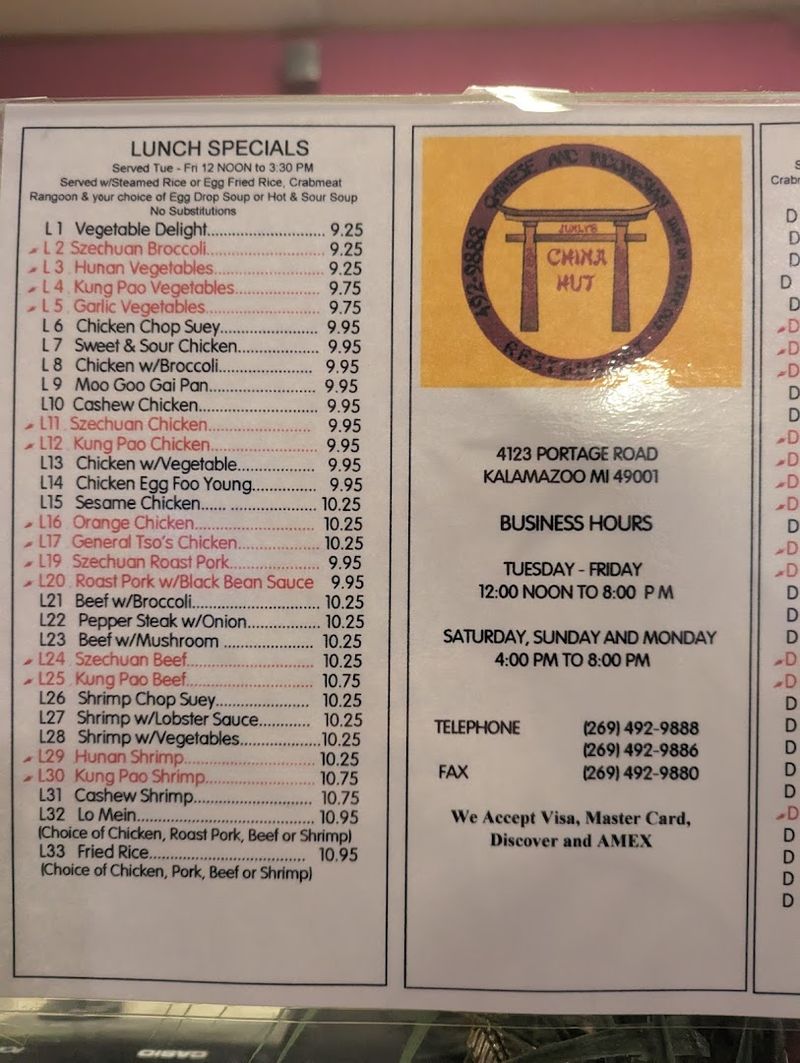 LUNCH SPECIALS
Served Tue - Fri 12 NOON to 3:30 PM
Served w/Steamed Rice or Egg Fried Rice, Crabmeat
Rangoon & your choice of Egg Drop Soup or Hot & Sour Soup
No Substitutions
L 1 Vegetable Delight............................ 9.25
L 2 Szechuan Broccoli........................... 9.25
L 3 Hunan Vegetables.......................... 9.25
L 4 Kung Pao Vegetables..................... 9.75
L 5 Garlic Vegetables............................ 9.75
L 6 Chicken Chop Suey....................... 9.95
L 7 Sweet & Sour Chicken.................... 9.95
L 8 Chicken w/Broccoli....................... 9.95
L 9 Moo Goo Gai Pan.......................... 9.95
L10 Cashew Chicken............................ 9.95
L11 Szechuan Chicken......................... 9.95
L12 Kung Pao Chicken......................... 9.95
L13 Chicken w/Vegetable.................... 9.95
L14 Chicken Egg Foo Young................ 9.95
L15 Sesame Chicken...... ...................... 10.25
L16 Orange Chicken............................. 10.25
L17 General Tso's Chicken.................... 10.25
L19 Szechuan Roast Pork...................... 9.95
L20 Roast Pork w/Black Bean Sauce 9.95
L21 Beef w/Broccoli................................ 10.25
L22 Pepper Steak w/Onion.................. 10.25
L23 Beef w/Mushroom ...................... 10.25
L24 Szechuan Beef............................... 10.25
L25 Kung Pao Beef............................... 10.75
L26 Shrimp Chop Suey....................... 10.25
L27 Shrimp w/Lobster Sauce............ 10.25
L28 Shrimp w/Vegetables....................10.25
L29 Hunan Shrimp................................ 10.25
L30 Kung Pao Shrimp........................... 10.75
L31 Cashew Shrimp............................. 10.75
L32 Lo Mein........................................... 10.95
(Choice of Chicken, Roast Pork, Beef or Shrimp)
L33 Fried Rice...................................... 10.95
(Choice of Chicken, Pork, Beef or Shrimp)
CHINESE AND INDONESIAN DINE IN - TAKE OUT
492-9888
CHINA
HUT
RESTAURANT
4123 PORTAGE ROAD
KALAMAZOO MI 49001
BUSINESS HOURS
TUESDAY - FRIDAY
12:00 NOON TO 8:00 P M
SATURDAY, SUNDAY AND MONDAY
4:00 PM TO 8:00 PM
TELEPHONE (269) 492-9888
(269) 492-9886
FAX (269) 492-9880
We Accept Visa, Master Card,
Discover and AMEX
S
Crabr
D
D
D
D
D
D
D
D
D
D
D
D
D
D
D
D
D
D
D
D
D
D
D
D
D
D
D
D
D
D
D
D
CASIO